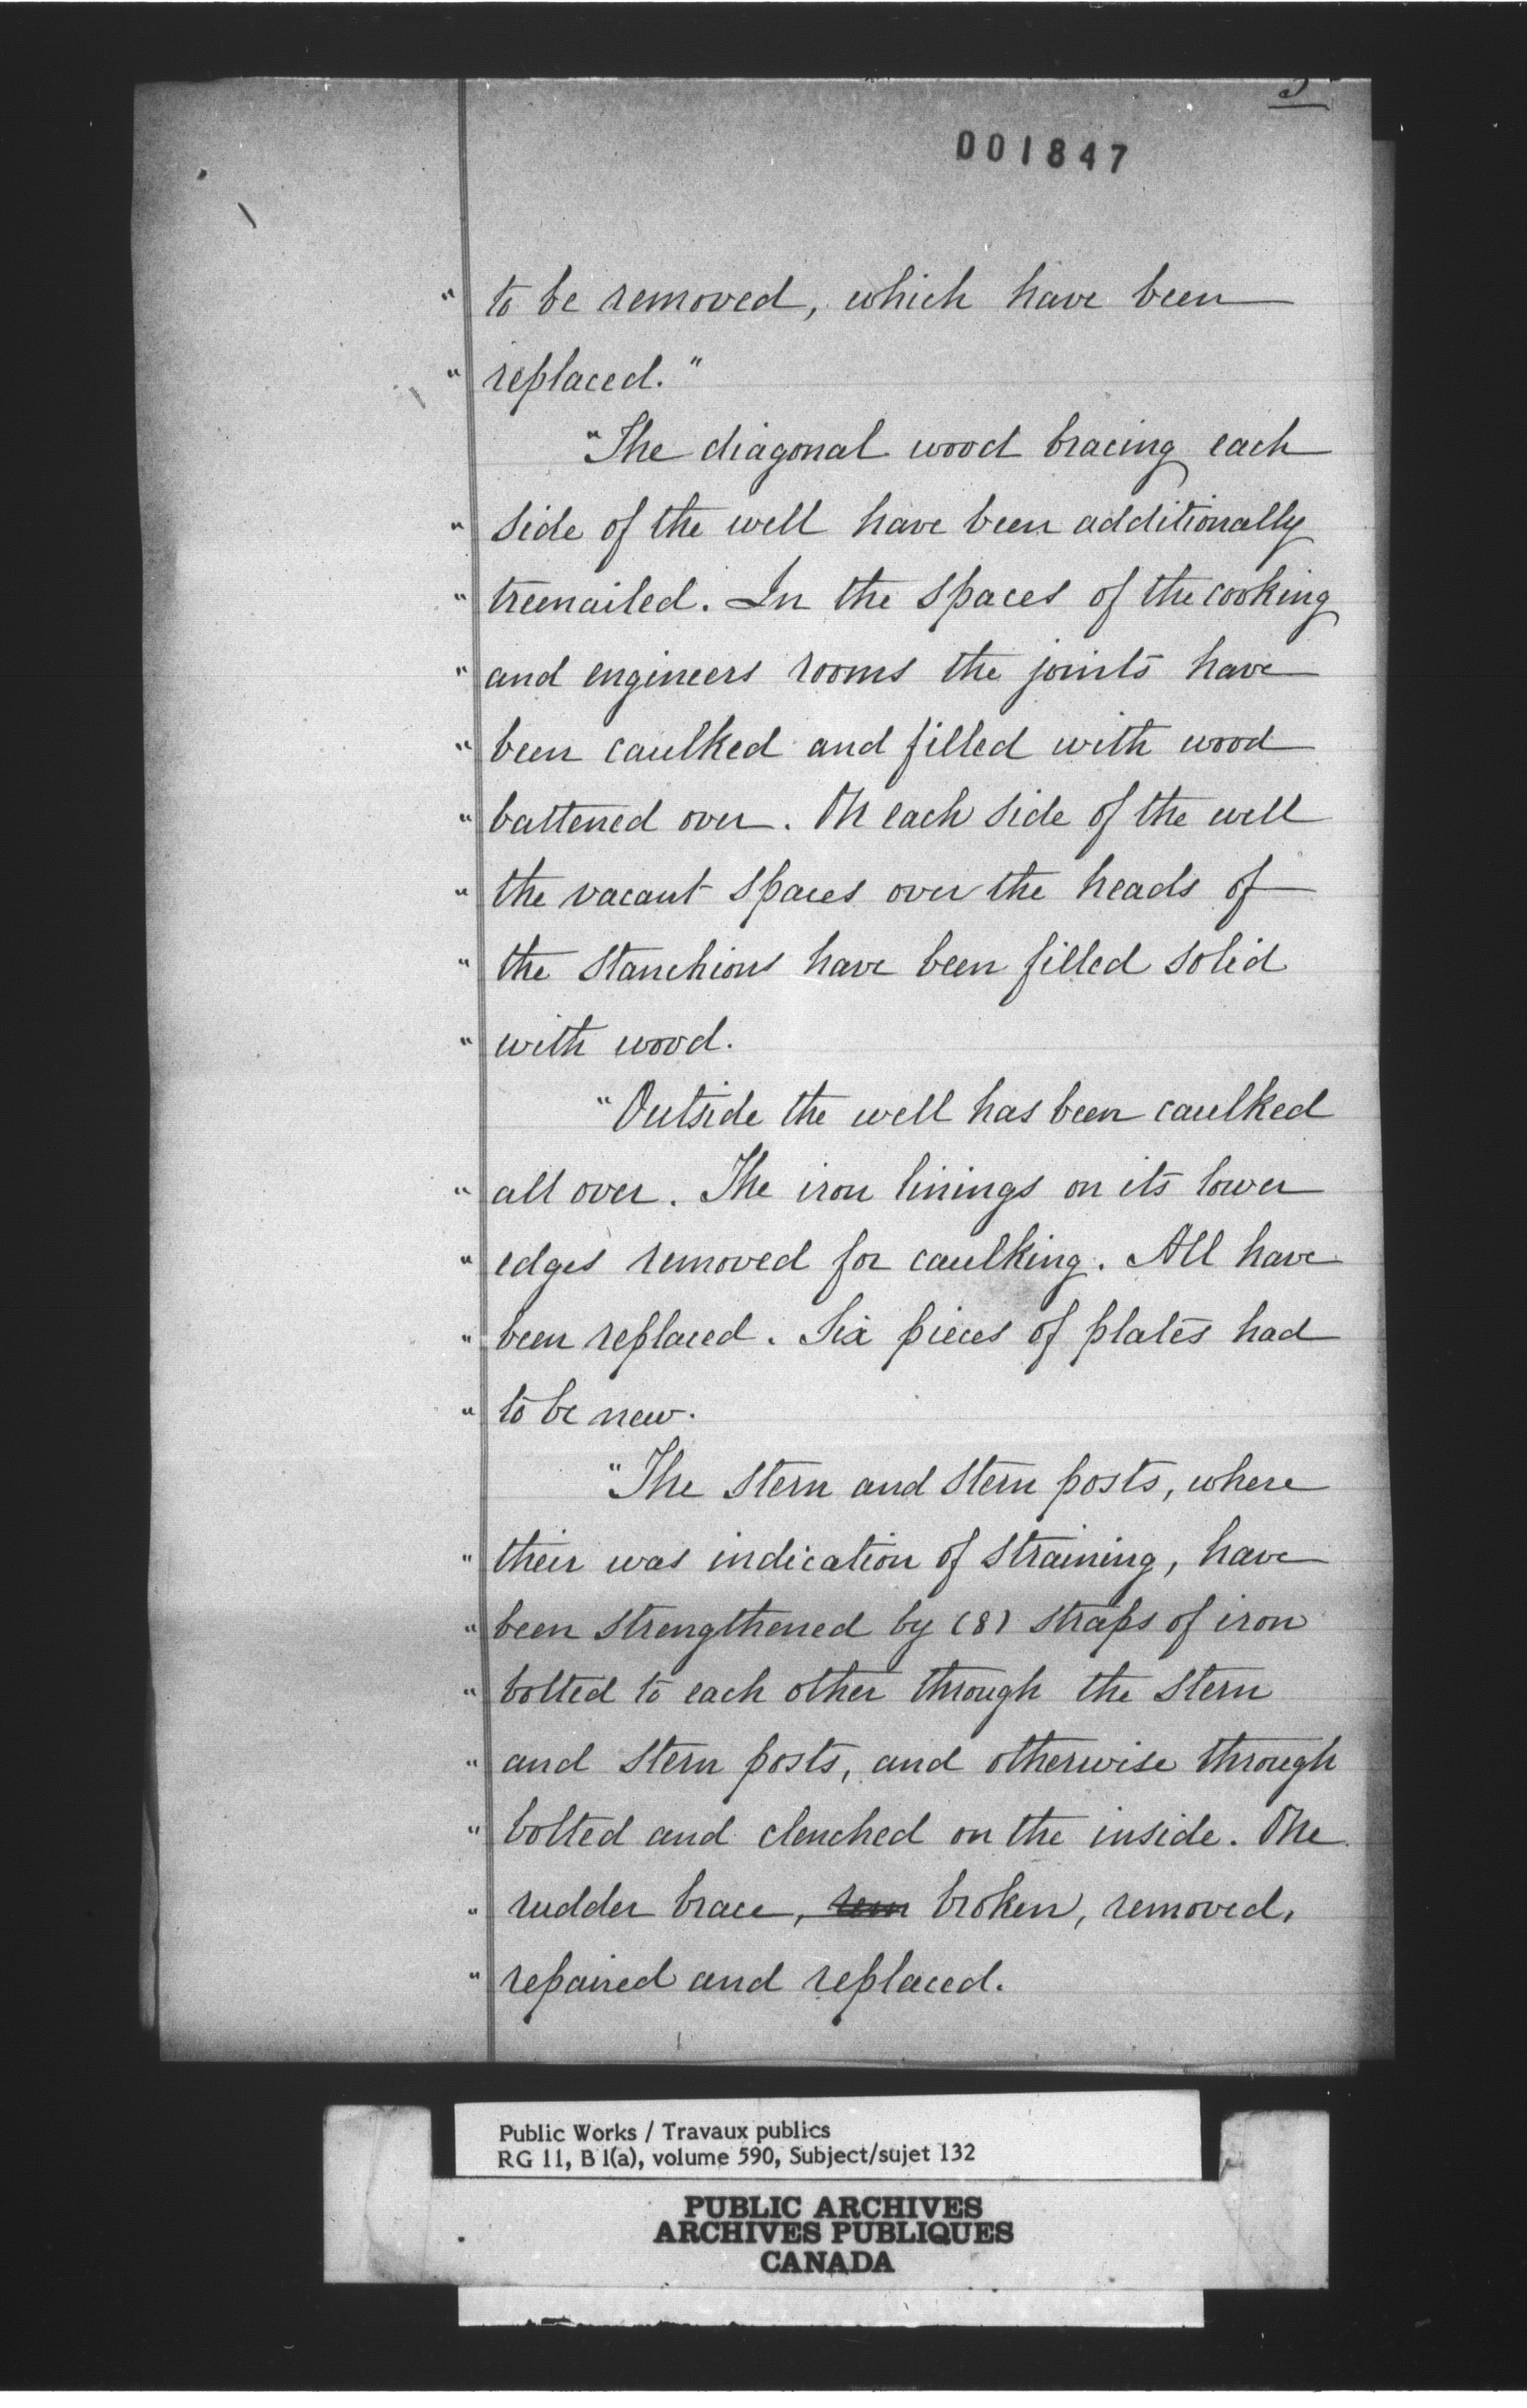 001847
" to be removed, which have been
" replaced."
"The diagonal wood bracing each
" side of the well have been additionally
" treenailed. In the spaces of the cooking
" and engineers rooms the joints have
" been caulked and filled with wood
" battened over. On each side of the well
" the vacant spaces over the heads of
" the stanchions have been filled solid
" with wood.
"Outside the well has been caulked
" all over. The iron linings on its lower
" edges removed for caulking. All have
" been replaced. Six pieces of plates had
" to be new.
"The stern and stern posts, where
" their was indication of straining, have
" been strengthened by (8) straps of iron
" bolted to each other through the stern
" and stern posts, and otherwise through
" bolted and clenched on the inside. One
" rudder brace, rem broken, removed,
" repaired and replaced.
Public Works / Travaux publics
RG 11, B 1(a), volume 590, Subject/sujet 132
PUBLIC ARCHIVES
ARCHIVES PUBLIQUES
CANADA